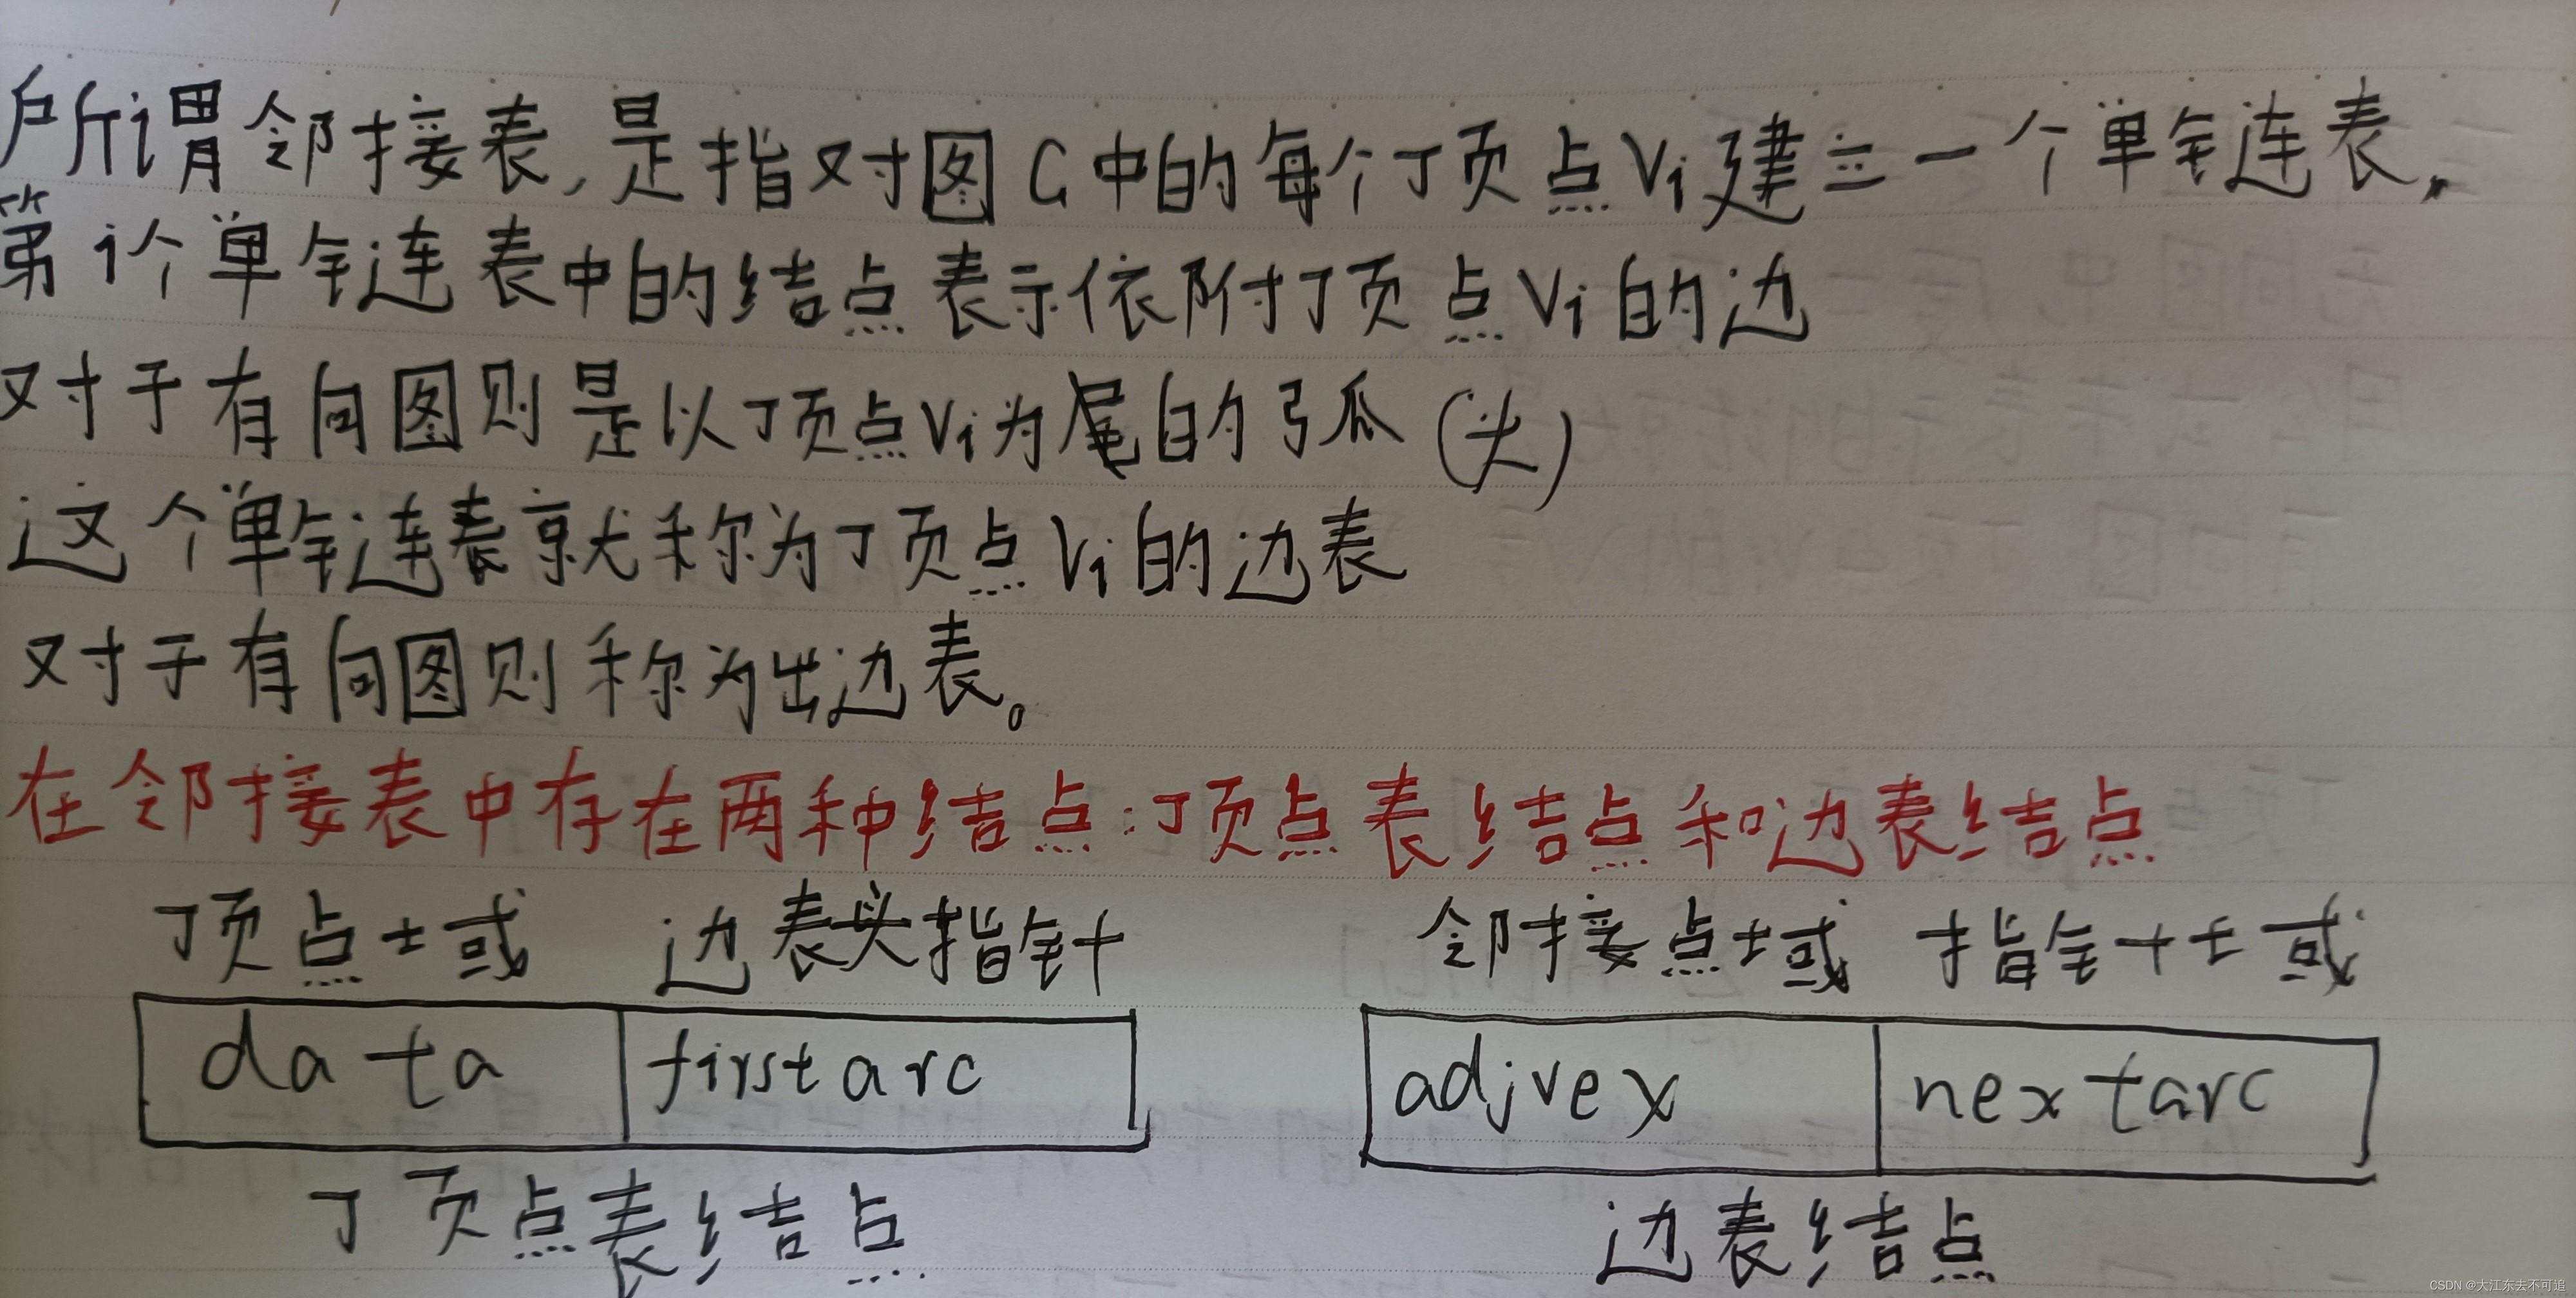 所谓邻接表,是指对图G中的每个顶点Vi建立一个单链表,
第i个单链表中的结点表示依附顶点Vi的边
对于有向图则是以顶点Vi为尾的弧(头)
这个单链表就称为顶点Vi的边表
对于有向图则称为出边表。
在邻接表中存在两种结点:顶点表结点和边表结点
顶点域 边表头指针 邻接点域 指针域
data firstarc adjvex nextarc
顶点表结点 边表结点
CSDN @大江东去不可追